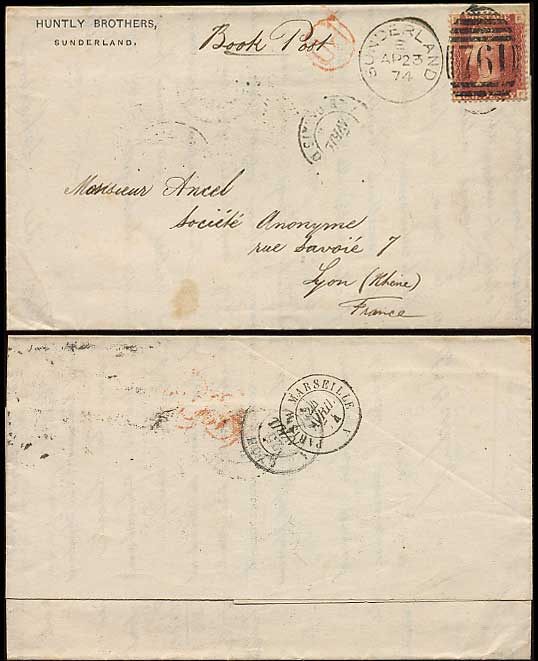 HUNTLY BROTHERS,
SUNDERLAND.
Book Post
SUNDERLAND
AP 23
74
761
AVRIL
Monsieur Ancel
Société Anonyme
rue Savoié 7
Lyon (Rhône)
France
MARSEILLE
AVRIL
PARIS